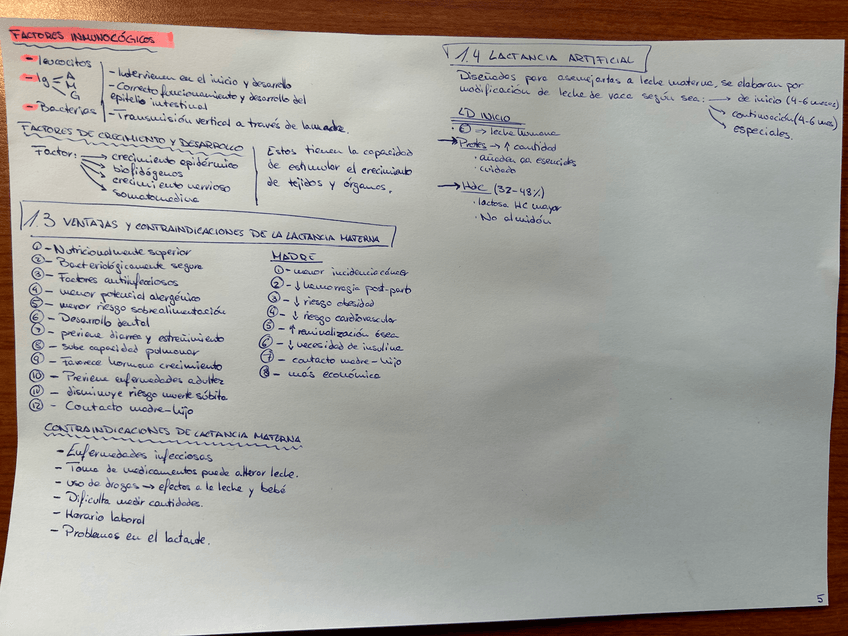 FACTORES INMUNOLÓGICOS
- leucocitos
- Ig A M G
- Bacterias
- Intervienen en el inicio y desarrollo
- Correcto funcionamiento y desarrollo del
epitelio intestinal
- Transmisión vertical a través de la madre.
FACTORES DE CRECIMIENTO Y DESARROLLO
Factor: → crecimiento epidérmico
→ biofidógenos
→ crecimiento nervioso
→ somatomedina
Estos tienen la capacidad
de estimular el crecimiento
de tejidos y órganos.
1.3 VENTAJAS Y CONTRAINDICACIONES DE LA LACTANCIA MATERNA
① - Nutricionalmente superior
② - Bacteriológicamente segura
③ - Factores antiinfecciosos
④ - menor potencial alergénico
⑤ - menor riesgo sobrealimentación
⑥ - Desarrollo dental
⑦ - previene diarrea y estreñimiento
⑧ - Sube capacidad pulmonar
⑨ - Favorece hormona crecimiento
⑩ - Previene enfermedades adultez
⑪ - disminuye riesgo muerte súbita
⑫ - Contacto madre-hijo
MADRE
① - menor incidencia cáncer
② - ↓ hemorragia post-parto
③ - ↓ riesgo obesidad
④ - ↓ riesgo cardiovascular
⑤ - ↑ reminalización ósea
⑥ - ↓ necesidad de insulina
⑦ - contacto madre-hijo
⑧ - más económica
CONTRAINDICACIONES DE LACTANCIA MATERNA
- Enfermedades infecciosas
- Toma de medicamentos puede alterar leche.
- uso de drogas → efectos a la leche y bebé
- Dificulta medir cantidades.
- Horario laboral
- Problemas en el lactante.
1.4 LACTANCIA ARTIFICIAL
Diseñadas para asemejarlas a leche materna, se elaboran por
modificación de leche de vaca según sea: → de inicio (4-6 meses)
→ continuación (4-6 mes)
→ especiales.
LD INICIO
· → leche humana
→ Protes → ↑ cantidad
· añaden aa esenciales
· cuidado
→ HdC (32-48%)
· lactosa HC mayor
· No almidón
5